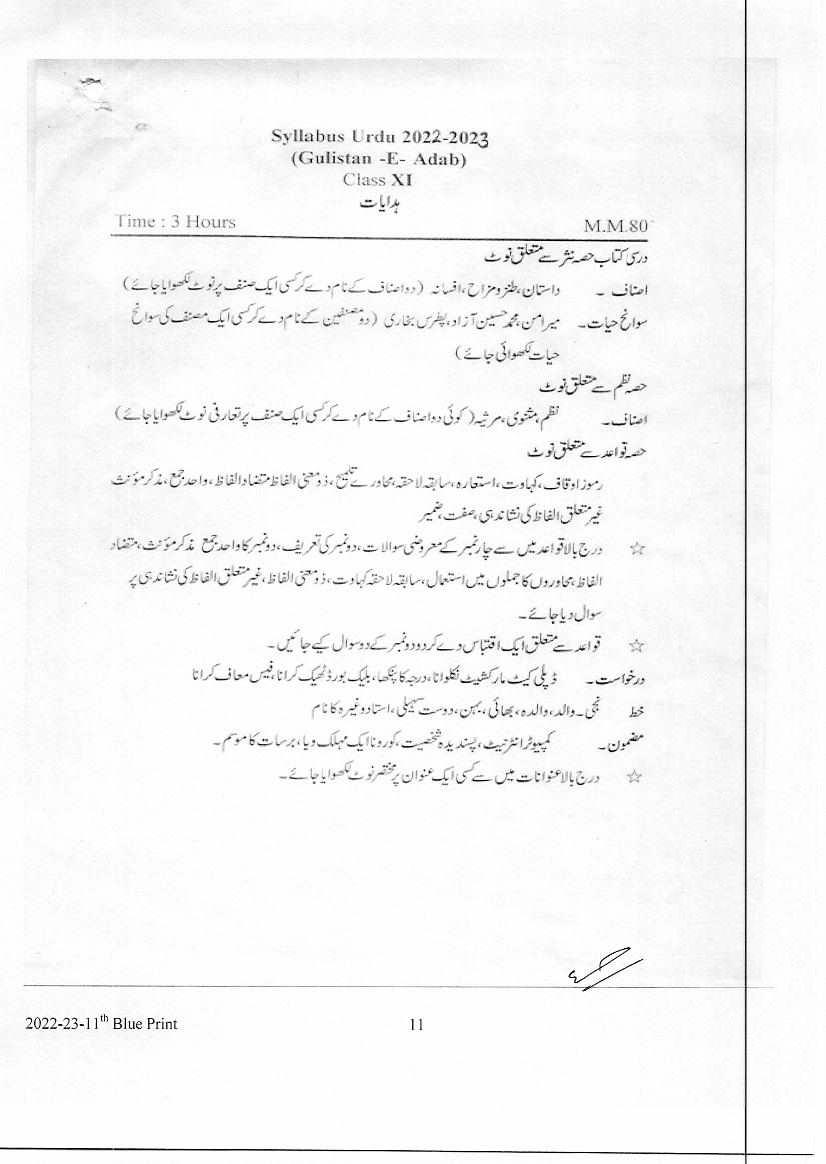 Syllabus Urdu 2022-2023
(Gulistan -E- Adab)
Class XI
ہدایات
Time : 3 Hours M.M.80
درسی کتاب حصہ نثر سے متعلق نوٹ
اصناف ۔ داستان، طنز و مزاح، افسانہ (دو اصناف کے نام دے کر کسی ایک صنف پر نوٹ لکھوایا جائے)
سوانح حیات۔ میر امن، محمد حسین آزاد، پطرس بخاری (دو مصنفین کے نام دے کر کسی ایک مصنف کی سوانح
حیات لکھوائی جائے)
حصہ نظم سے متعلق نوٹ
اصناف۔ نظم، مثنوی، مرثیہ (کوئی دو اصناف کے نام دے کر کسی ایک صنف پر تعارفی نوٹ لکھوایا جائے)
حصہ قواعد سے متعلق نوٹ
رموز اوقاف، کہاوت، استعارہ، سابقہ لاحقہ، محاورے تلمیح، ذو معنی الفاظ متضاد الفاظ، واحد جمع، مذکر مؤنث
غیر متعلق الفاظ کی نشاندہی، صفت، ضمیر
☆ درج بالا قواعد میں سے چار نمبر کے معروضی سوالات، دو نمبر کی تعریف، دو نمبر کا واحد جمع مذکر مؤنث، متضاد
الفاظ، محاوروں کا جملوں میں استعمال، سابقہ لاحقہ کہاوت، ذو معنی الفاظ، غیر متعلق الفاظ کی نشاندہی پر
سوال دیا جائے۔
☆ قواعد سے متعلق ایک اقتباس دے کر دو دو نمبر کے دو سوال کیے جائیں۔
درخواست۔ ڈپلی کیٹ مارکشیٹ نکلوانا، درجہ کا پنکھا، بلیک بورڈ ٹھیک کرانا، فیس معاف کرانا
خط نجی۔ والد، والدہ، بھائی، بہن، دوست سہیلی، استاد وغیرہ کا نام
مضمون۔ کمپیوٹر انٹرنیٹ، پسندیدہ شخصیت، کورونا ایک مہلک وبا، برسات کا موسم۔
☆ درج بالا عنوانات میں سے کسی ایک عنوان پر مختصر نوٹ لکھوایا جائے۔
2022-23-11th Blue Print 11